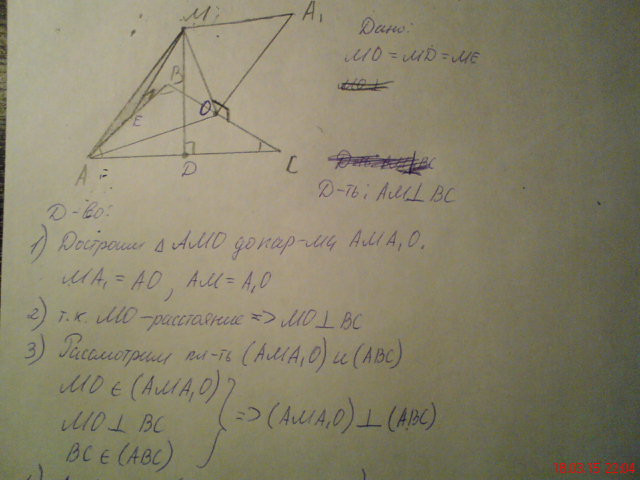 M
A₁
B
O
E
A
D
C
Дано:
MO = MD = ME
Д-ть: AM⊥BC
Д-во:
1) Достроим △ AMO до пар-ма AMA₁O.
MA₁ = AO, AM = A₁O
2) т.к. MO - расстояние => MO⊥BC
3) Рассмотрим пл-ть (AMA₁O) и (ABC)
MO ∈ (AMA₁O)
MO ⊥ BC
BC ∈ (ABC)
=> (AMA₁O) ⊥ (ABC)